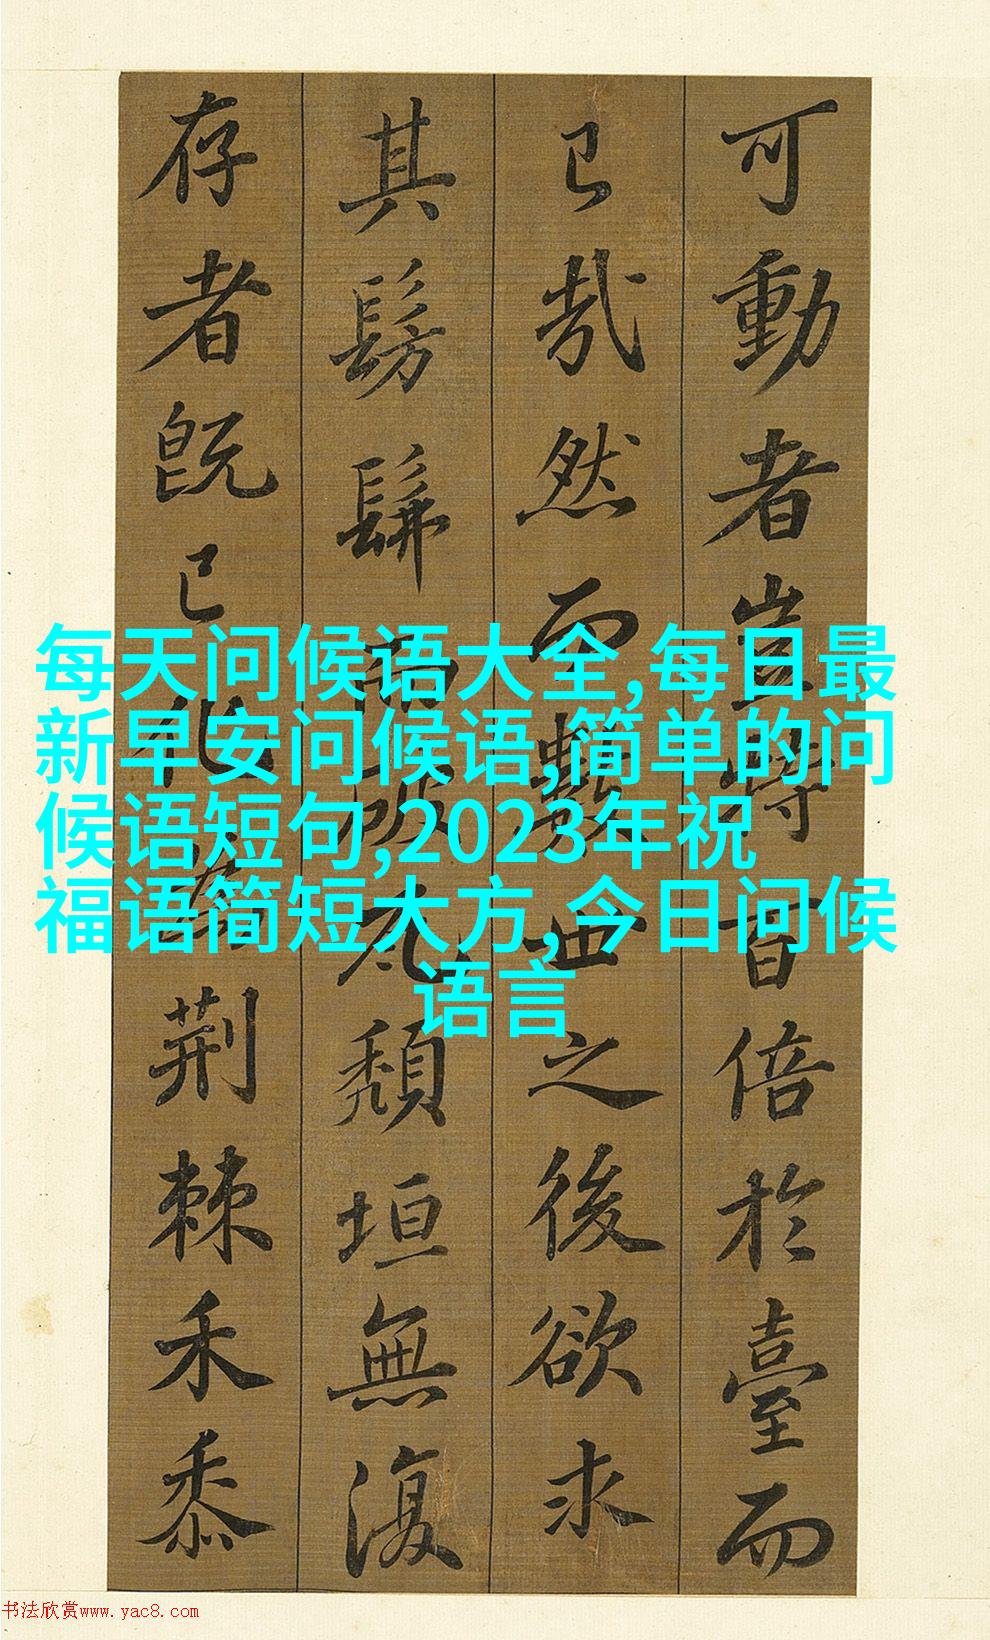 可動者豈特百倍於臺而
已哉然而數世之後欲求
其髣髴而破瓦頹垣無復
存者既已化為荆棘禾黍
每天问候语大全,每日最
新早安问候语,简单的问
候语短句,2023年祝
福语简短大方,今日问候
语言
书法欣赏www.yac8.com